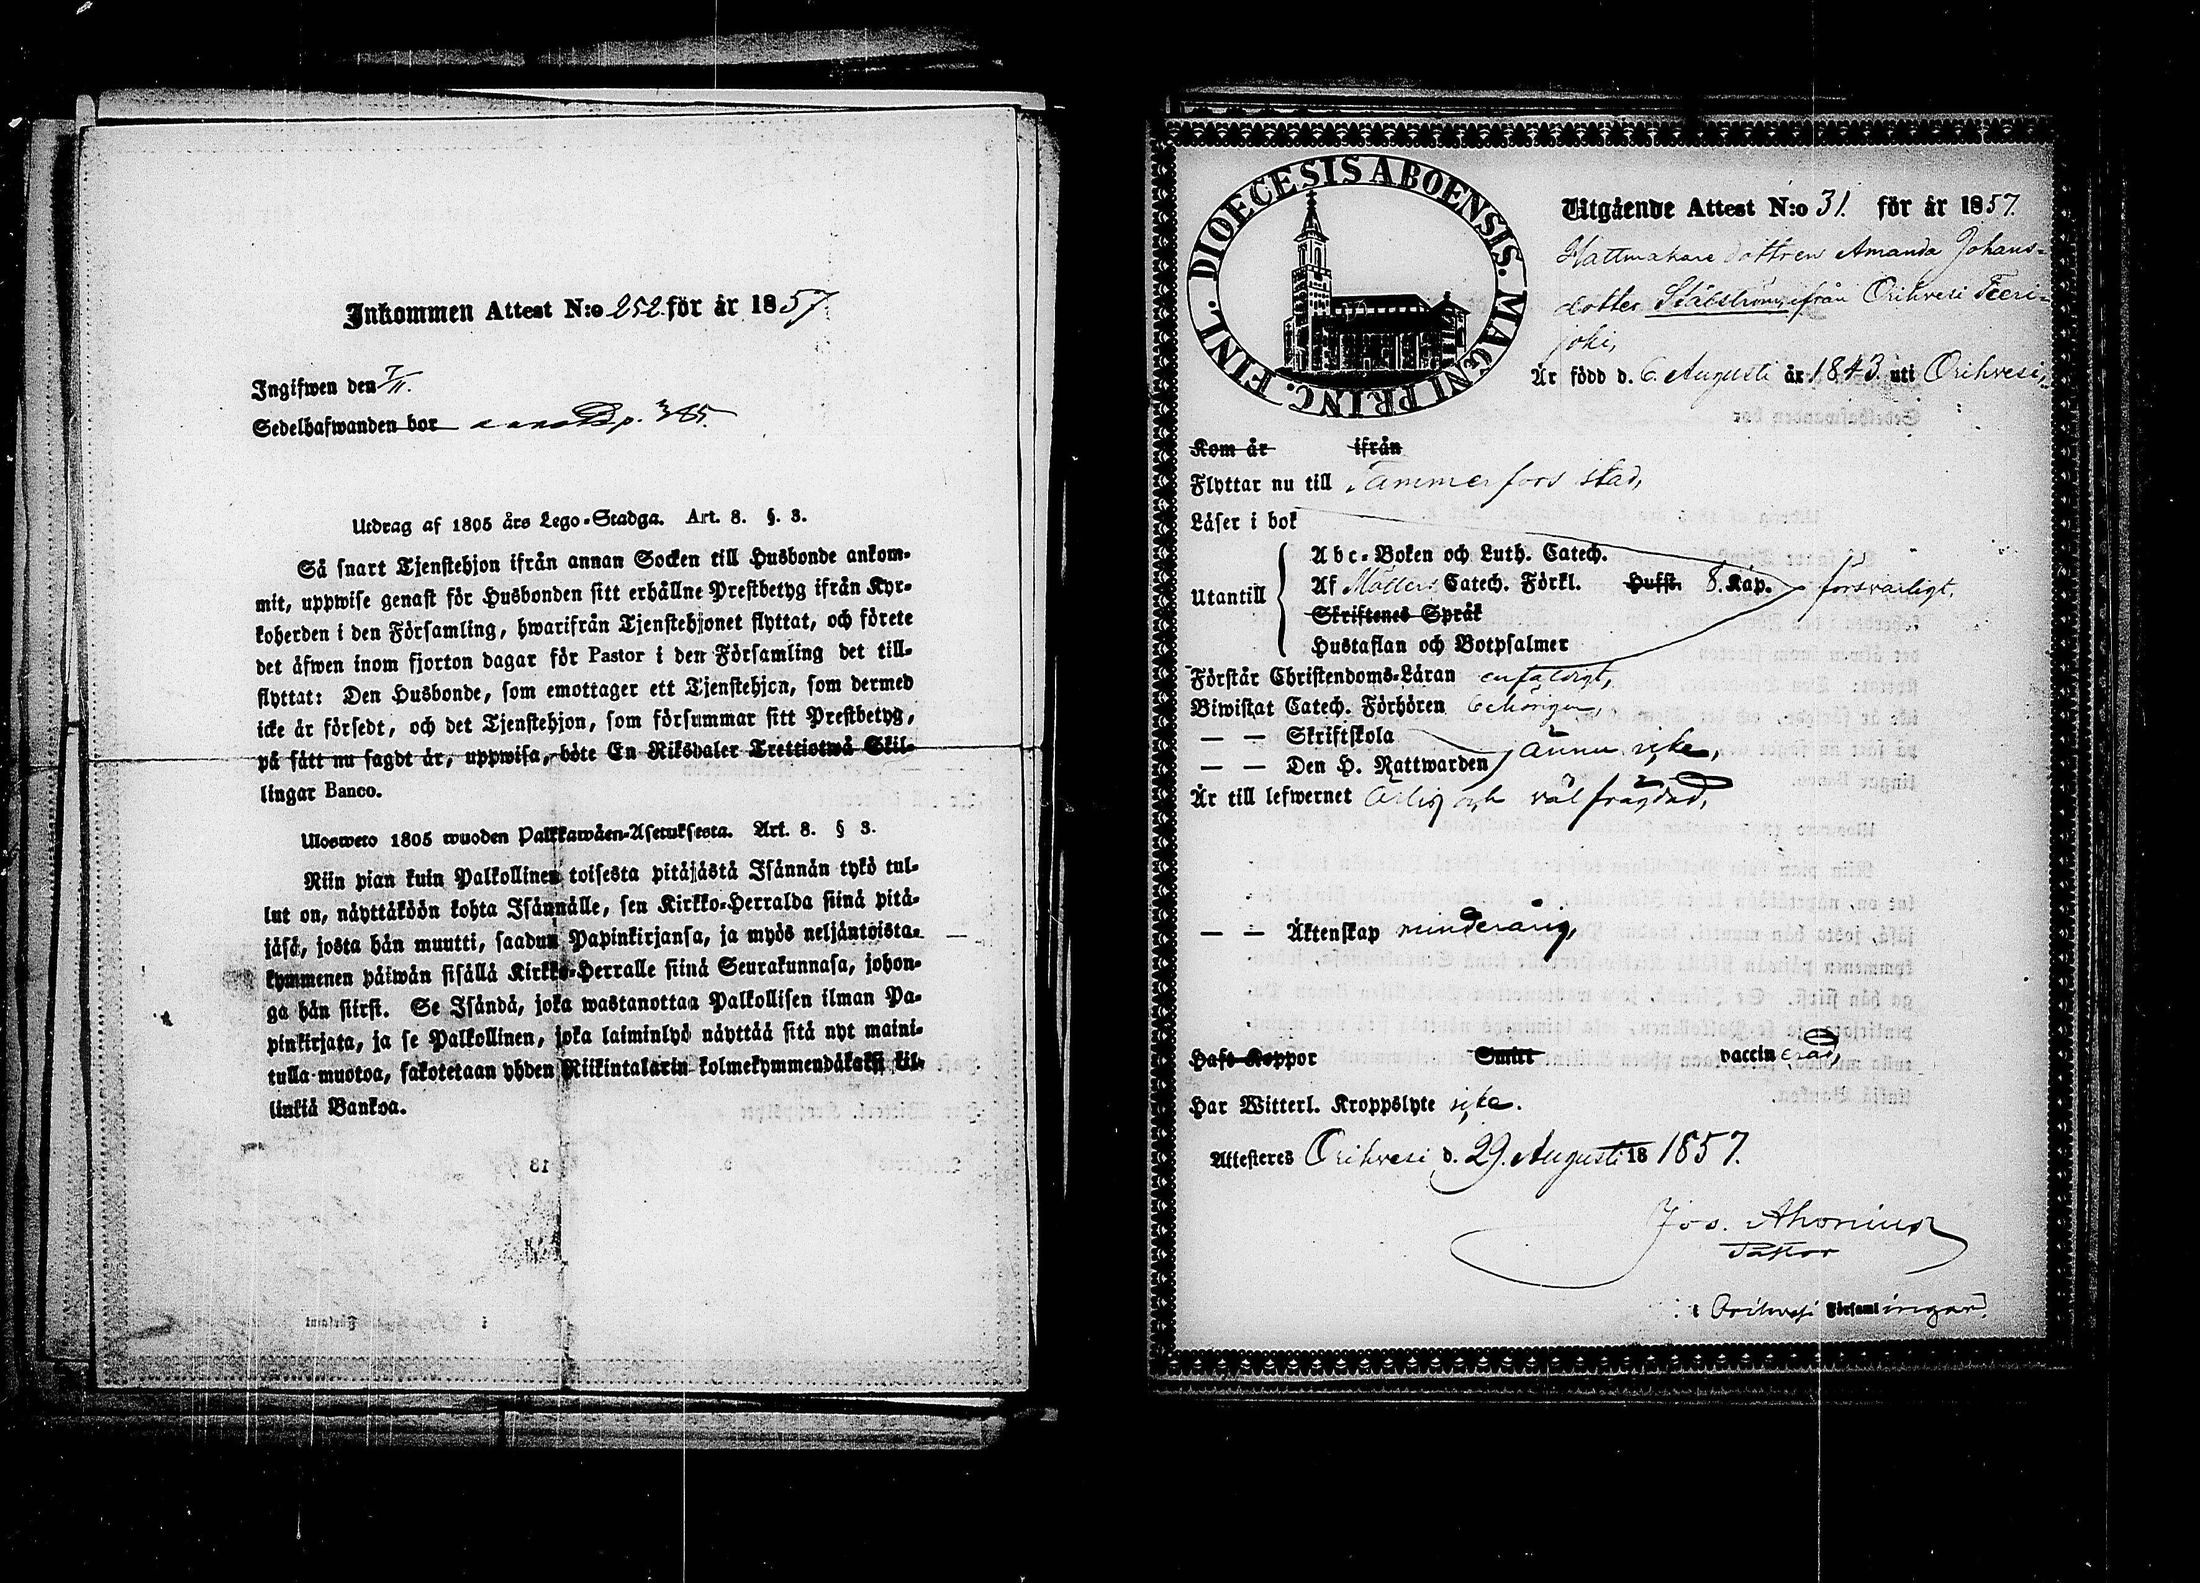 Inkommen Attest N:o 252 för år 1857
Ingifwen den 7/11.
Sedelhafwanden bor p. 385.
Utdrag af 1805 års Lego-Stadga. Art. 8. §. 3.
Så snart Tjenstehjon ifrån annan Socken till Husbonde ankom-
mit, uppwise genast för Husbonden sitt erhållne Prestbetyg ifrån Kyr-
koherden i den Församling, hwarifrån Tjenstehjonet flyttat, och förete
det äfwen inom fjorton dagar för Pastor i den Församling det till-
flyttat: Den Husbonde, som emottager ett Tjenstehjon, som dermed
icke är försedt, och det Tjenstehjon, som försummar sitt Prestbetyg,
på sätt nu sagdt är, uppwisa, böte En Riksdaler Trettiotwå Skil-
lingar Banco.
Ulosweto 1805 wuoden Palkkawäen-Asetuksesta. Art. 8. § 3.
Niin pian kuin Palkollinen toisesta pitäjästä Isännän tykö tul-
lut on, näyttäköön kohta Isännälle, sen Kirkko-Herralda siinä pitä-
jäsä, josta hän muutti, saadun Papinkirjansa, ja myös neljäntoista-
kymmenen päiwän sisällä Kirkko-Herralle siinä Seurakunnasa, johon-
ga hän siirsi. Se Isändä, joka wastanottaa Palkollisen ilman Pa-
pinkirjata, ja se Palkollinen, joka laiminlyö näyttää sitä nyt maini-
tulla muotoa, sakotetaan yhden Riikintalarin kolmekymmendäkaksi kil-
linkiä Bankoa.
DIOECESIS ABOENSIS. MAGNI PRINC. FINL.
Utgående Attest N:o 31. för år 1857.
Hattmakare dottren Amanda Johans-
dotter Stålström ifrån Orihvesi Teeri-
joki,
Är född d. 6 Augusti år 1843. uti Orihvesi,
Kom år ifrån
Flyttar nu till Tammerfors stad,
Läser i bok
Utantill
Abc-Boken och Luth. Catech.
Af Möllers Catech. Förkl. Hufst. 8. Kap. försvarligt,
Skriftenes Språk
Hustaflan och Botpsalmer
Förstår Christendoms-Läran enfaldigt,
Biwistat Catech. Förhören behörigen,
— — Skriftskola
— — Den H. Nattwarden ännu icke,
Är till lefwernet ärlig och väl frägdad,
— — Äktenskap minderårig,
Haft Koppor Smitt vaccinerad,
Har Witterl. Kroppslyte icke.
Attesteres Orihvesi d. 29. Augusti 18 1857.
Jos. Ahonius
Pastor
i Orihvesi Församlingar.